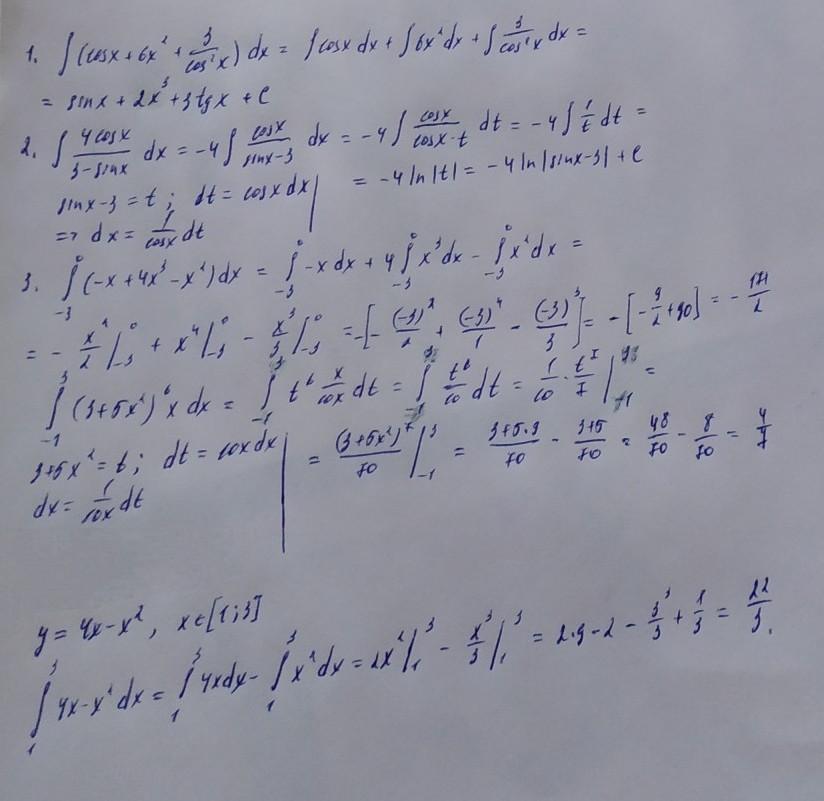 1. ∫(cosx + 6x² + 3/cos²x) dx = ∫cosx dx + ∫6x² dx + ∫3/cos²x dx =
= sinx + 2x³ + 3tgx + C
2. ∫ 4cosx/(3-sinx) dx = -4∫ cosx/(sinx-3) dx = -4∫ cosx/(cosx·t) dt = -4∫ 1/t dt =
sinx-3 = t; dt = cosx dx | = -4 ln|t| = -4 ln|sinx-3| + C
=> dx = 1/cosx dt
3. ∫₋₃⁰ (-x + 4x³ - x²) dx = ∫₋₃⁰ -x dx + 4∫₋₃⁰ x³ dx - ∫₋₃⁰ x² dx =
= - x²/2 |₋₃⁰ + x⁴ |₋₃⁰ - x³/3 |₋₃⁰ = -[- (-3)²/2 + (-3)⁴/1 - (-3)³/3] = -[-9/2 + 90] = - 171/2
∫₋₁³ (3+5x²)⁶ x dx = ∫₋₁³ t⁶ x/10x dt = ∫ t⁶/10 dt = 1/10 · t⁷/7 | =
3+5x² = t; dt = 10x dx | = (3+5x²)⁷/70 |₋₁³ = (3+5·9)/70 - (3+5)/70 = 48/70 - 8/70 = 4/7
dx = 1/10x dt
y = 4x - x², x∈[1;3]
∫₁³ 4x - x² dx = ∫₁³ 4x dx - ∫₁³ x² dx = 2x² |₁³ - x³/3 |₁³ = 2·9 - 2 - 3³/3 + 1/3 = 22/3.